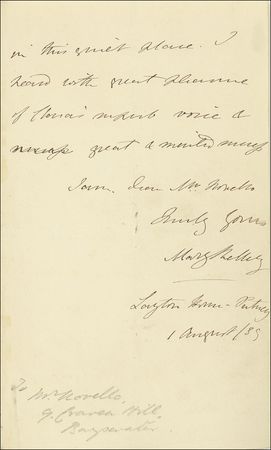 in this quiet place. I
heard with great pleasure
of Clara's superb voice &
great & merited success
I am, dear Mr Novello
Truly Yours
Mary Shelley
Layton House - Putney
1 August /39
To Mr Novello,
9. Craven Hill,
Bayswater.